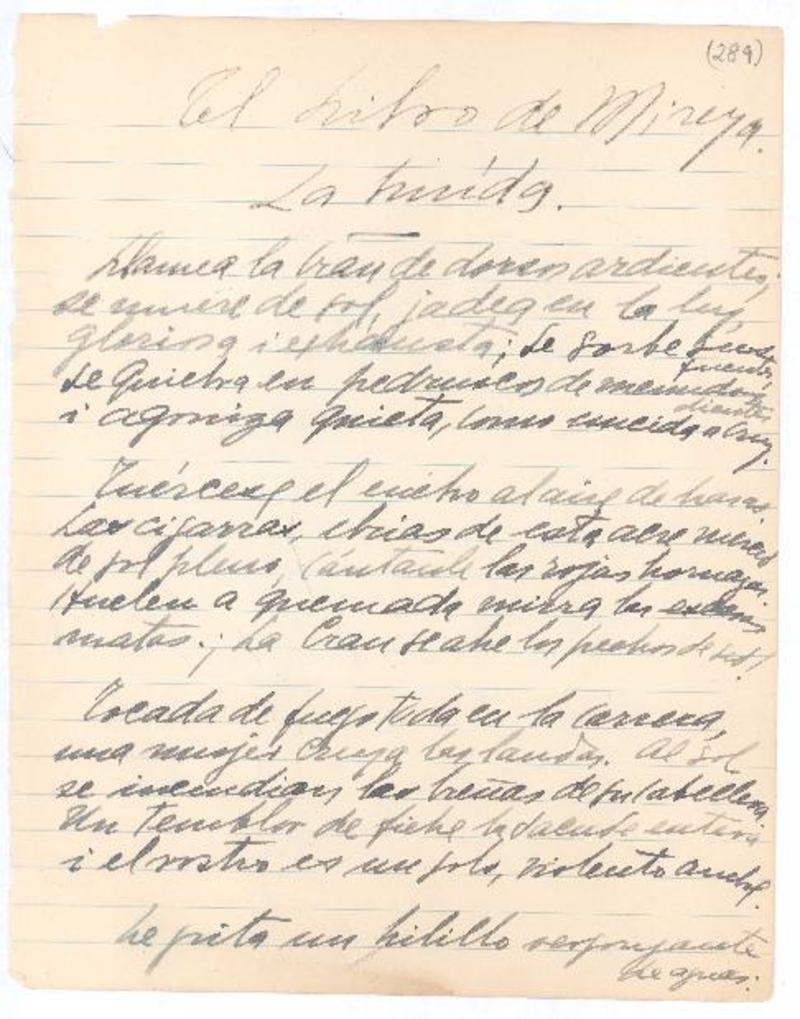 (289)
El Libro de Mireya.
La huída.
Llamea la Crau de dorsos ardientes;
se muere de sol, jadea en la luz,
gloriosa i exhausta; se sorbe sus
fuentes,
se quiebra en pedruscos de menudos
dientes
i agoniza quieta, como uncida a cruz.
Tuércese el enebro al aire de brasas.
Las cigarras, ebrias de esta acre
de sol pleno, cántanle las rojas hornazas.
Huelen a quemada mirra las
matas. ¡La Crau se abe los pechos de sed!
Tocada de fuego toda en la carrera,
una mujer cruza las landas. Al sol
se incendian las breñas de su cabellera.
Un temblor de fiebre la sacude entera
i el rostro es un solo, violento arrebol.
Le grita un hilillo vergonzante
de aguas: